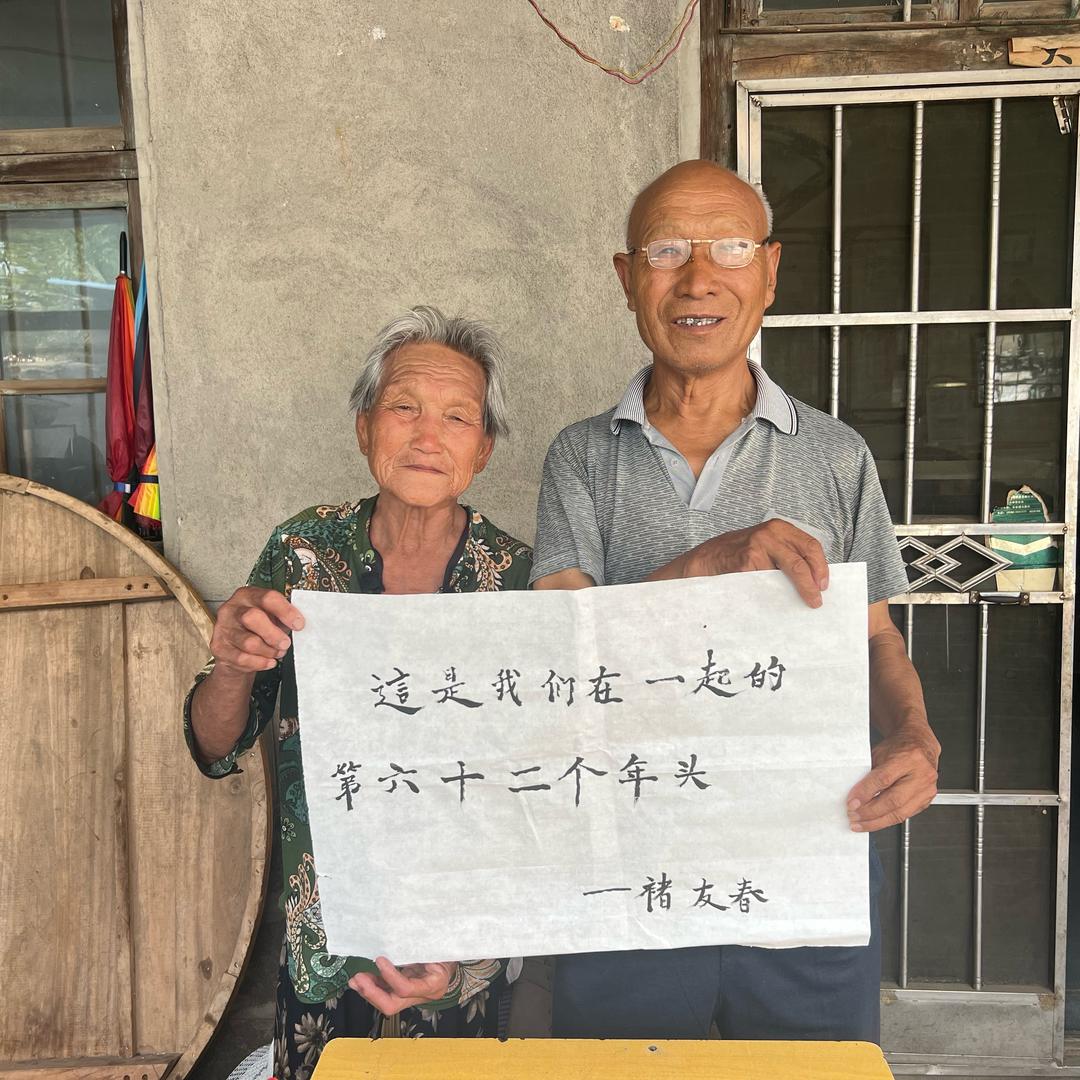 這是我们在一起的
第六十二个年头
一褚友春